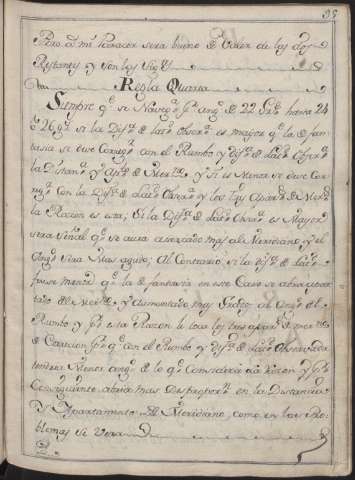 35
Pero a mi Parecer sera bueno el Valer de las dos
Restantes y son las Sigtes
Regla Quinta
Siempre qe se Navege Pr angº de 22 Grs hasta 24
ó 26 gs si la Difª de latd Obserda es mayor qe la de fan-
tasia se deve Corregir con el Rumbo y Difª de Latd Obserda
la Distanª y Aparº de Merdº y Si es Menor se deve Cor-
regir con la Difª de Latd Obserda y los tres Apartº de Merdº
la Razon es esta; Si la Difª de Latd Obserda es Mayor
sera Señal qe se avra acercado mas al Meridiano y el
Angº Sera Mas agudo; Al Contrario si la difª de latd
fuese menor qe la de fantasia en este Caso se abra apar-
tado del Merdº y Aumentado mas Grados al Angº del
Rumbo y Pr esta Razon le toca los tres apartº de merdº
de Caucion Pr qe con el Rumbo y Difª de Latd Observada
tendria Menos angº de lo qe Comvendria a la razon y Pr lo
Consiguiente abria mas Desproporn en la Distancia
y Apartamento del Meridiano, como en los Pro-
blemas se Vera